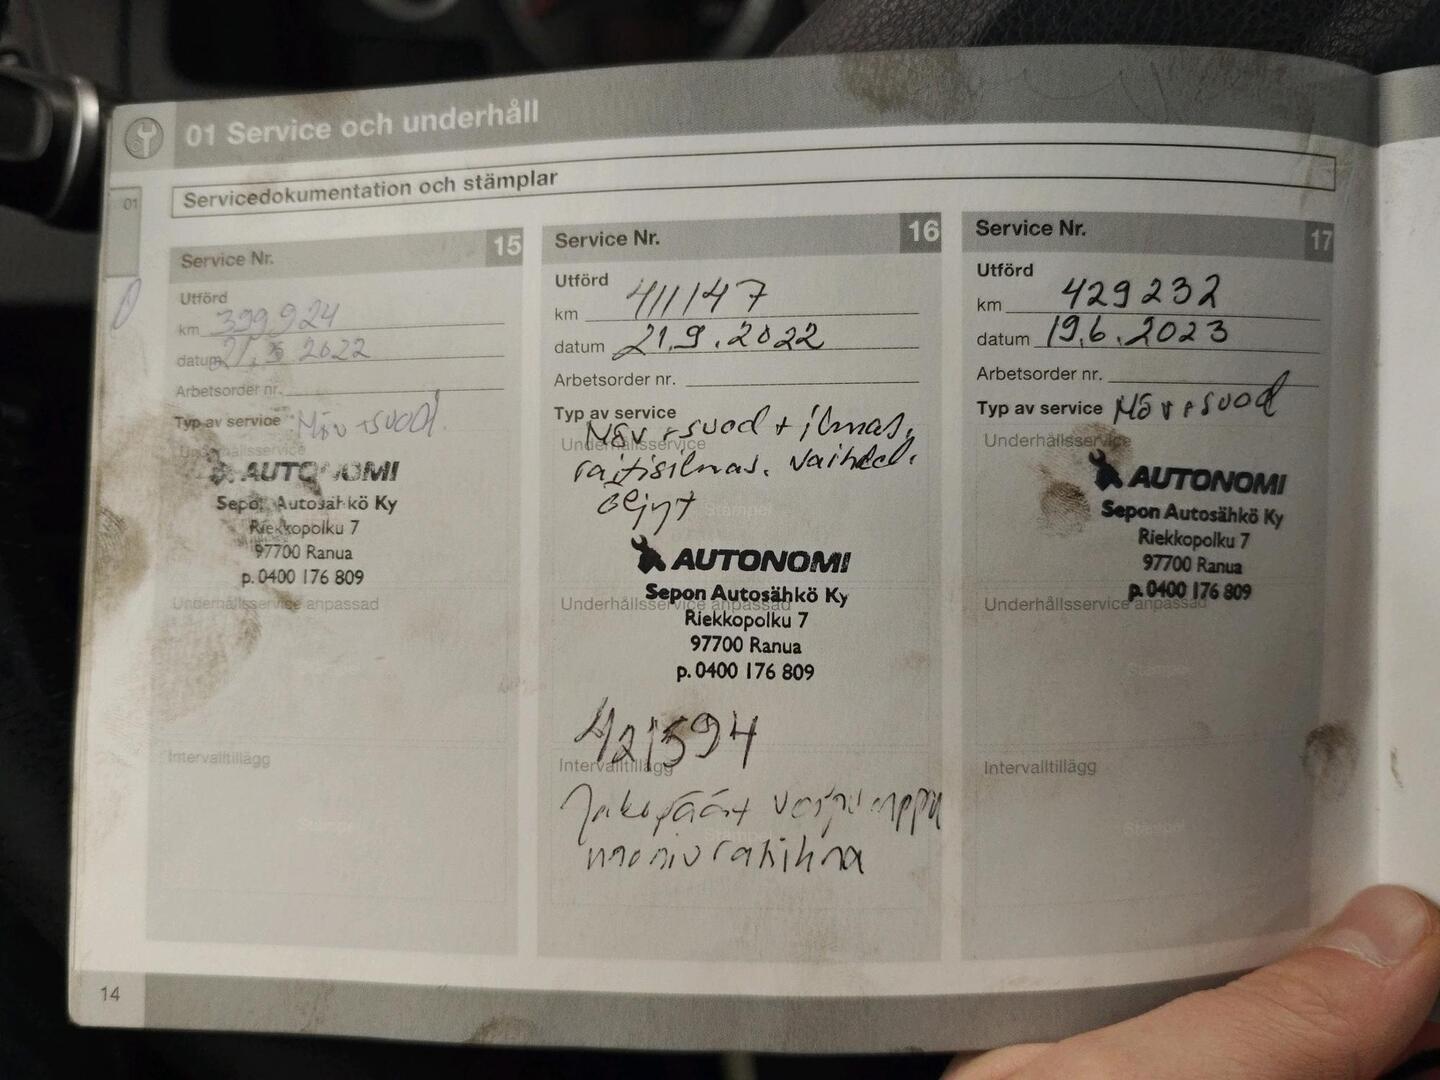 01 Service och underhåll
01
Servicedokumentation och stämplar
Service Nr. 15
Utförd
km 399924
datum 2022
Arbetsorder nr.
Typ av service Möv + suod.
Underhållsservice
AUTONOMI
Sepon Autosähkö Ky
Riekkopolku 7
97700 Ranua
p. 0400 176 809
Underhållsservice anpassad
Intervalltillägg
Stämpel
Service Nr. 16
Utförd
km 411147
datum 21.9.2022
Arbetsorder nr.
Typ av service
Möv + suod + ilmas,
Underhållsservice
raitisilmas. vaihdel.
öljyt
Stämpel
AUTONOMI
Sepon Autosähkö Ky
Underhållsservice anpassad
Riekkopolku 7
97700 Ranua
p. 0400 176 809
421594
Intervalltillägg
Jakopäät vesipumppu
Stämpel
moniurahihna
Service Nr. 17
Utförd
km 429232
datum 19.6.2023
Arbetsorder nr.
Typ av service Möv + suod
Underhållsservice
AUTONOMI
Sepon Autosähkö Ky
Riekkopolku 7
97700 Ranua
p. 0400 176 809
Underhållsservice anpassad
Stämpel
Intervalltillägg
Stämpel
14